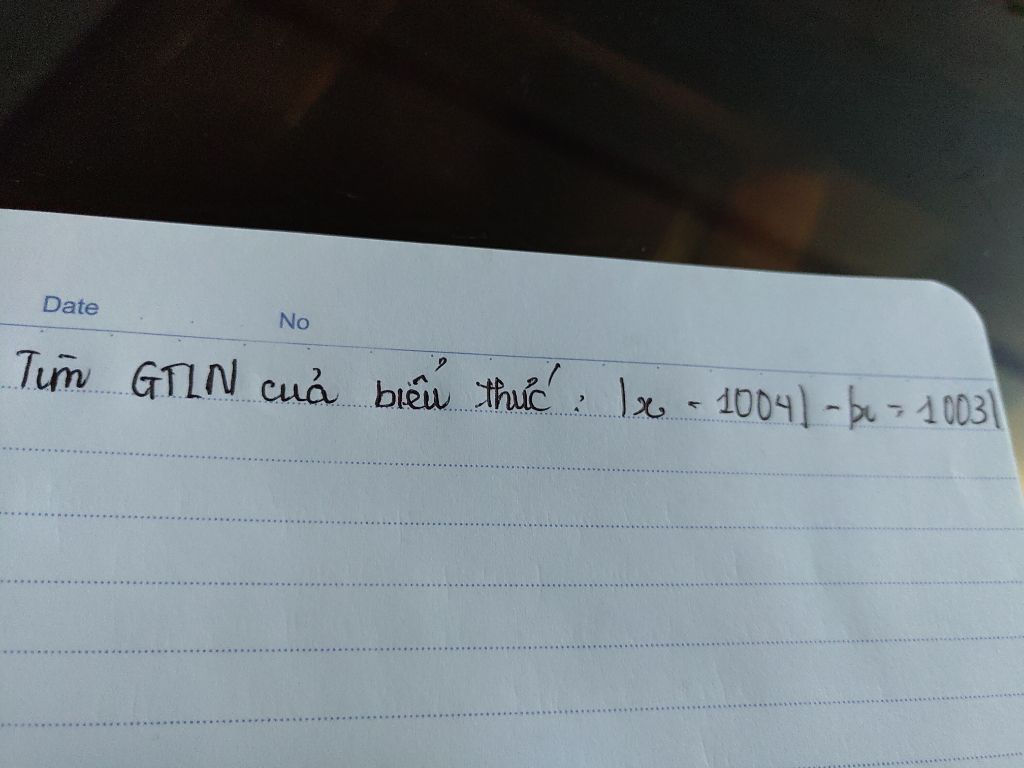 Date No
Tìm GTLN của biểu thức : |x - 1004| - |x - 1003|